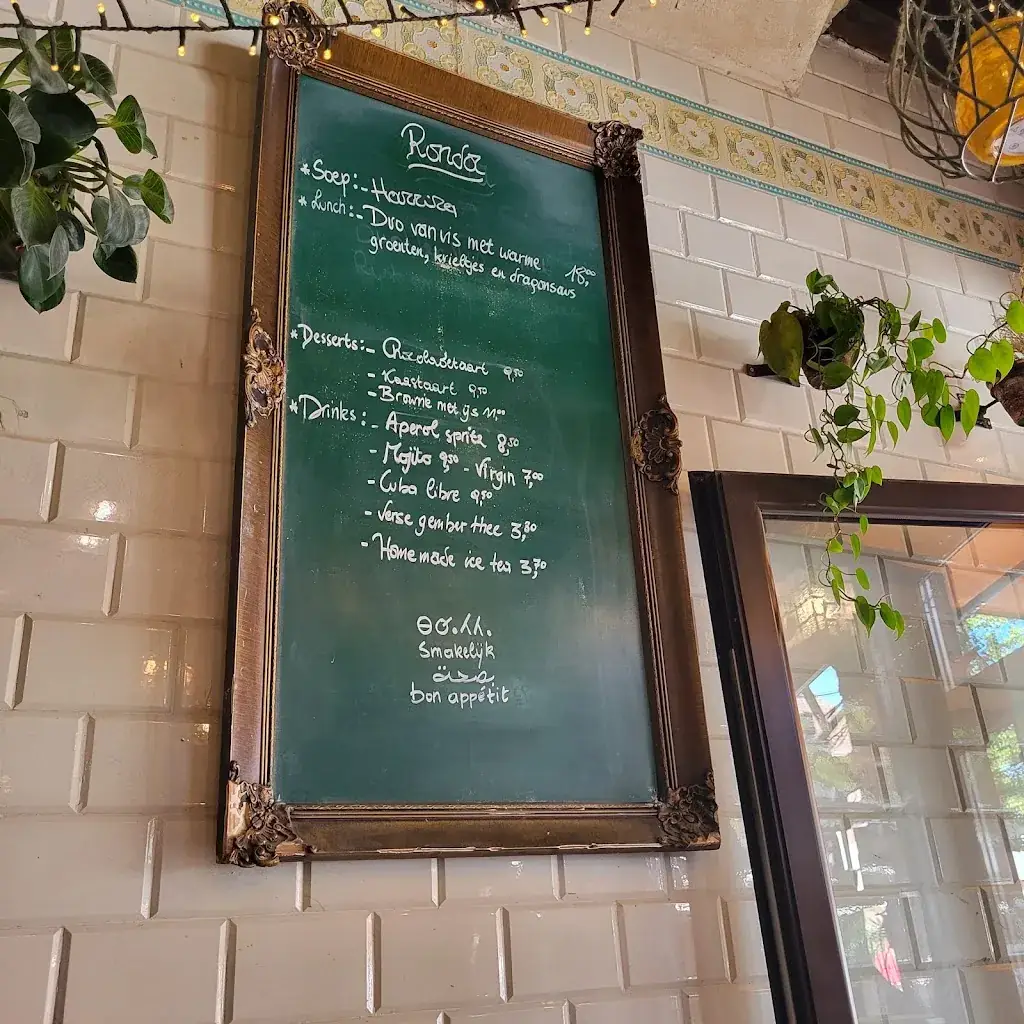 Ronda
* Soep: - Harrira
* Lunch: - Duo van vis met warme
groenten, krieltjes en dragonsaus 18,00
* Desserts: - Chocoladetaart 9,50
- Kaastaart 9,50
- Brownie met ijs 11,00
* Drinks: - Aperol spritz 8,50
- Mojito 9,50 - Virgin 7,00
- Cuba libre 9,50
- Verse gember thee 3,80
- Home made ice tea 3,70
Smakelijk
صحة
bon appétit